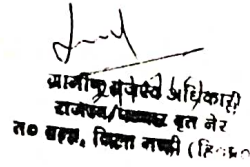 ग्रामीण राजस्व अधिकारी
राजस्व/ वृत नेर
त० बल्ह, जिला मण्डी (हि०प्र०)